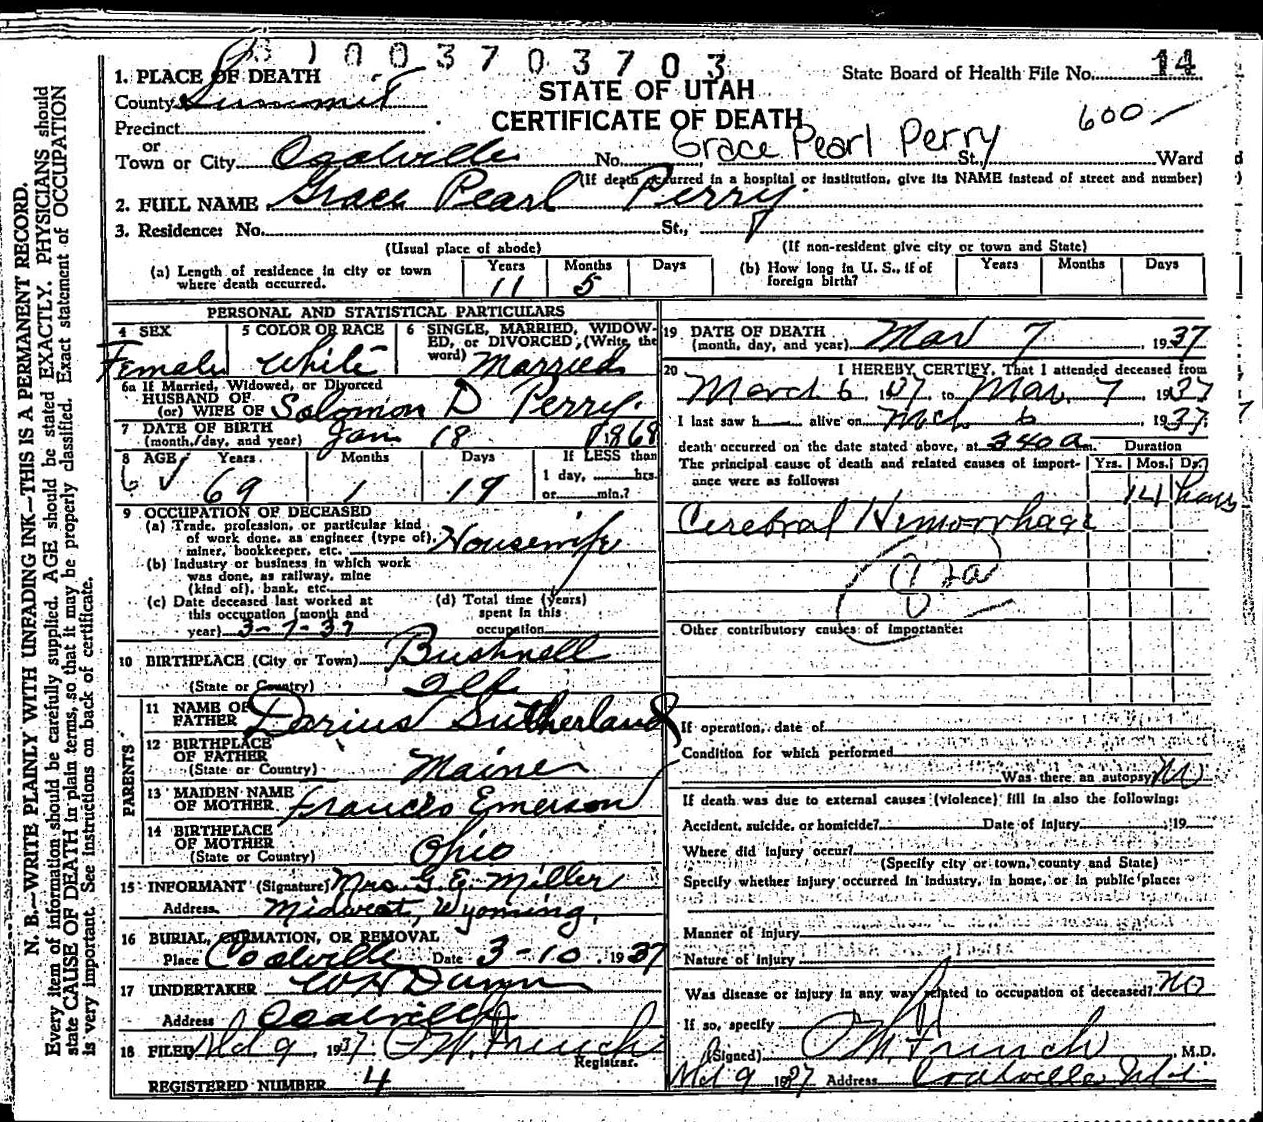 31003703703
14
1. PLACE OF DEATH
State Board of Health File No.
County Summit
STATE OF UTAH
600
Precinct
CERTIFICATE OF DEATH
or
Town or City Coalville No. Grace Pearl Perry St., Ward
(If death occurred in a hospital or institution, give its NAME instead of street and number)
2. FULL NAME Grace Pearl Perry.
3. Residence: No. St.,
(Usual place of abode) (If non-resident give city or town and State)
(a) Length of residence in city or town where death occurred. Years 11 Months 5 Days
(b) How long in U. S., if of foreign birth? Years Months Days
PERSONAL AND STATISTICAL PARTICULARS
4 SEX Female
5 COLOR OR RACE White
6 SINGLE, MARRIED, WIDOWED, OR DIVORCED, (Write the word) Married
6a If Married, Widowed, or Divorced
HUSBAND OF
(or) WIFE OF Solomon D Perry.
7 DATE OF BIRTH
(month, day, and year) Jan 18 1868
8 AGE Years 69 Months 1 Days 19
If LESS than
1 day, hrs.
or min.?
9 OCCUPATION OF DECEASED
(a) Trade, profession, or particular kind
of work done, as engineer (type of),
miner, bookkeeper, etc. Housewife
(b) Industry or business in which work
was done, as railway, mine
(kind of), bank, etc.
(c) Date deceased last worked at
this occupation (month and
year) 3-7-37
(d) Total time (years)
spent in this
occupation
10 BIRTHPLACE (City or Town) Bushnell
(State or Country) Ill.
PARENTS
11 NAME OF FATHER Darius Sutherland
12 BIRTHPLACE OF FATHER
(State or Country) Maine
13 MAIDEN NAME OF MOTHER Frances Emerson
14 BIRTHPLACE OF MOTHER
(State or Country) Ohio
15 INFORMANT (Signature) Mrs. G. E. Miller
Address Midwest, Wyoming.
16 BURIAL, CREMATION, OR REMOVAL
Place Coalville Date 3-10, 1937
17 UNDERTAKER W H Dunn
Address Coalville
18 FILED Mch 9, 1937 P M. French
Registrar.
REGISTERED NUMBER 4
19 DATE OF DEATH
(month, day, and year) Mar 7, 1937
20 I HEREBY CERTIFY, That I attended deceased from
March 6 1937, to Mar. 7 1937
I last saw h alive on Mch. 6, 1937.
death occurred on the date stated above, at 240 a m. Duration
The principal cause of death and related causes of importance were as follows: Yrs. Mos. Ds.
14 hours
Cerebral Hemorrhage
82a
Other contributory causes of importance:
If operation, date of
Condition for which performed
Was there an autopsy No
If death was due to external causes (violence) fill in also the following:
Accident, suicide, or homicide? Date of injury 19
Where did injury occur?
(Specify city or town, county and State)
Specify whether injury occurred in industry, in home, or in public place:
Manner of injury
Nature of injury
Was disease or injury in any way related to occupation of deceased? No
If so, specify
(Signed) P M. French M.D.
Mch 9 1937 Address Coalville Utah
N. B.—WRITE PLAINLY WITH UNFADING INK—THIS IS A PERMANENT RECORD.
Every item of information should be carefully supplied. AGE should be stated EXACTLY. PHYSICIANS should
state CAUSE OF DEATH in plain terms, so that it may be properly classified. Exact statement of OCCUPATION
is very important. See instructions on back of certificate.